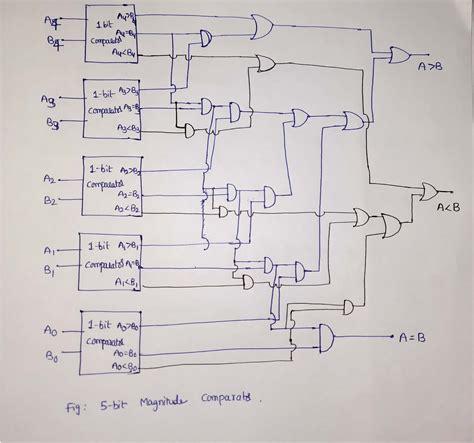 A4
B4
1 bit
Comparator
A4>B4
A4=B4
A4<B4
A3
B3
1-bit
Comparator
A3>B3
A3=B3
A3<B3
A2
B2
1-bit
Comparator
A2>B2
A2=B2
A2<B2
A1
B1
1-bit
Comparator
A1>B1
A1=B1
A1<B1
A0
B0
1-bit
Comparator
A0>B0
A0=B0
A0<B0
A>B
A<B
A=B
Fig: 5-bit Magnitude Comparator.